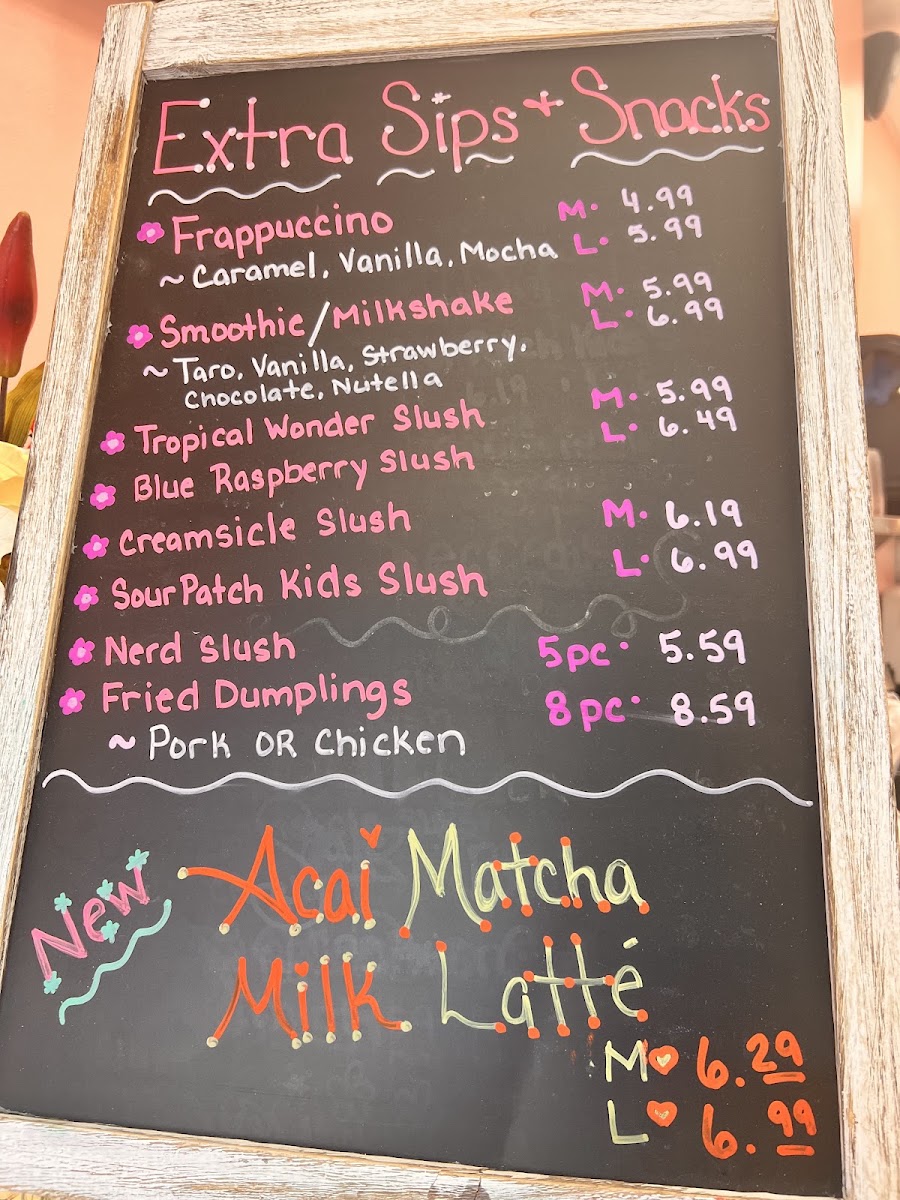 Extra Sips + Snacks
Frappuccino M. 4.99
~ Caramel, Vanilla, Mocha L. 5.99
Smoothie/Milkshake M. 5.99
L. 6.99
~ Taro, Vanilla, Strawberry,
Chocolate, Nutella
Tropical Wonder Slush M. 5.99
L. 6.49
Blue Raspberry Slush
Creamsicle Slush M. 6.19
L. 6.99
Sour Patch Kids Slush
Nerd Slush 5pc. 5.59
Fried Dumplings 8pc. 8.59
~ Pork OR Chicken
New
Acai Matcha
Milk Latté
M 6.29
L 6.99